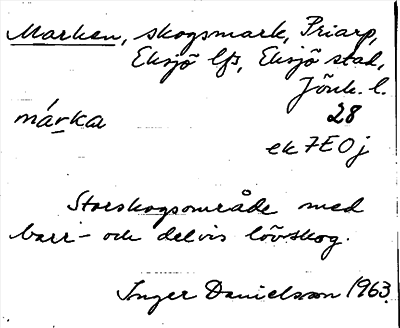 Marken, skogsmark, Priarp,
Eksjö lfs, Eksjö stad,
Jönk. l.
márka
28
ek 7E0j
Storskogsområde med
barr- och delvis lövskog.
Inger Danielsson 1963.